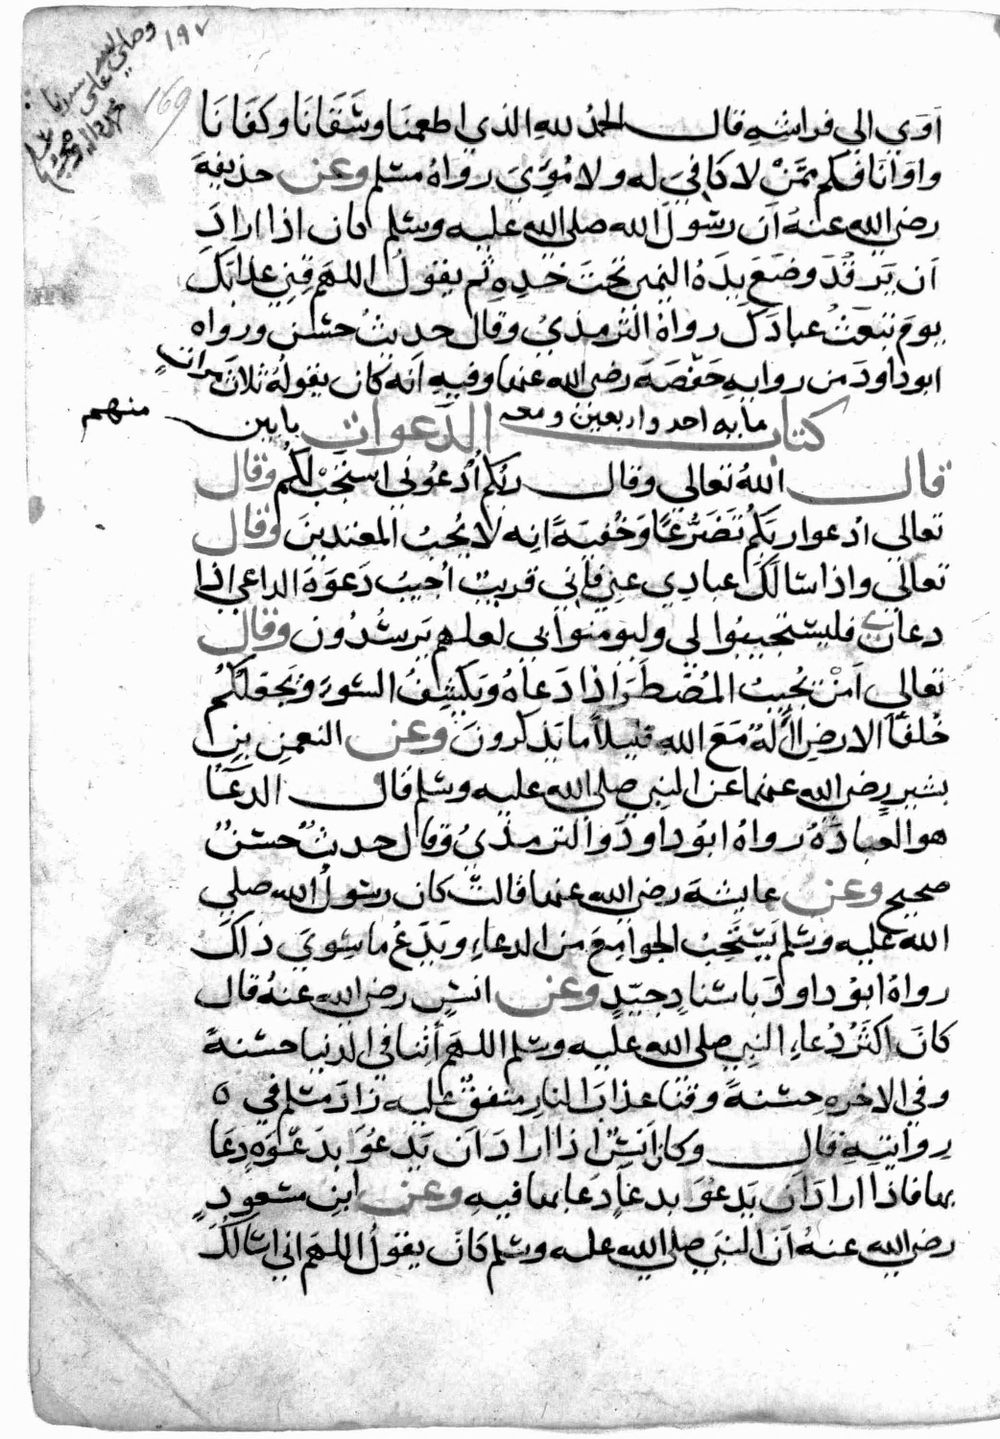 ١٩٧
وصلى الله
على سيدنا
محمد واله وصحبه
169
اوَي الي فراشهِ قال الحمدُ للهِ الذي اطعمنَا وسَقَانَا وكفَانَا
واوَانَا فكم ممَّنْ لا كافيَ له ولا مُؤويَ رواهُ مسلم وعن حذيفة
رضي الله عنهُ اَن رسُولَ الله صلى الله عليه وسلم كان اذا ارادَ
اَن يَرقُدَ وضَعَ يدَهُ اليمني تحتَ خدهِ ثم يقولُ اللهمَ قِنِي عذابَكَ
يومَ تبعَثُ عبادَكَ رواهُ الترمذيُ وقال حديثُ حسَن ورواه
ابو داودَ من روايهِ حَفْصَةَ رضي الله عنها وفيهِ انَه كان يقولهُ ثلاثَ مراتٍ
كتاب الدَعوات
مايه احد واربعين ومعه بابين منهم
قال اللهُ تعالى وقال ربُكُم اُدْعُوني استجبْ لكُم وقال
تعالى ادْعوا ربَكُم تَضَرُّعًا وَخُفيَةً انِه لا يُحبُ المعتدينَ وقال
تعالَي واذا سَالَكَ عبادِي عنِي فاِني قريبٌ اُجيبُ دَعوَةَ الداعِ اذا
دعانِي فليستجيبُوا لي وليومنوا بي لعلهم يَرشُدُون وقال
تعالى اَمنْ يُجيبُ المُضْطَرَ اِذا دَعاهُ ويَكشِفُ السُوءَ ويَجعَلُكُم
خُلفَآ الارضِ أَالَهٌ مَعَ اللهِ قليلاً ما تذكَرونَ وعن النعمنِ بنِ
بشيرٍ رضي الله عنهما عن النبيِ صلى الله عليه وسلم قال الدعَآ
هو العبادَةُ رواهُ ابوُ داودَ والترمذيُ وقال حديثٌ حسَنٌ
صحيح وعن عايشهَ رضي الله عنها قالتْ كان رسُولُ الله صلي
الله عليه وسلم يَستَحبُ الجوامِعَ من الدعاءِ ويَدَعُ ما سِوَي ذلكَ
رواهُ ابوُ داودَ باسنادٍ جيّدٍ وعن انسٍ رضي الله عنهُ قال
كانَ اكثَرُ دُعاءِ النبِي صلى الله عليه وسلم اللهمَ اَتنا في الدنيا حسَنةً
وفي الاخرهِ حسَنةً وقِنا عذابَ النارِ متفقٌ عليهِ زادَ مسْلم في ٥
رِوايتِهِ قال وكان اَنسٌ اذا ارادَ اَن يَدعُوَ بدَعْوَهٍ دعَا
بها فاذا ارادَ اَن يَدعُوَ بدعَآٍ دَعا بها فيهِ وعن ابنِ مسْعودٍ
رضي الله عنهُ اَنَ النبَي صلى الله عليه وسلم كانَ يقولُ اللهمَ اني اسَالُكَ